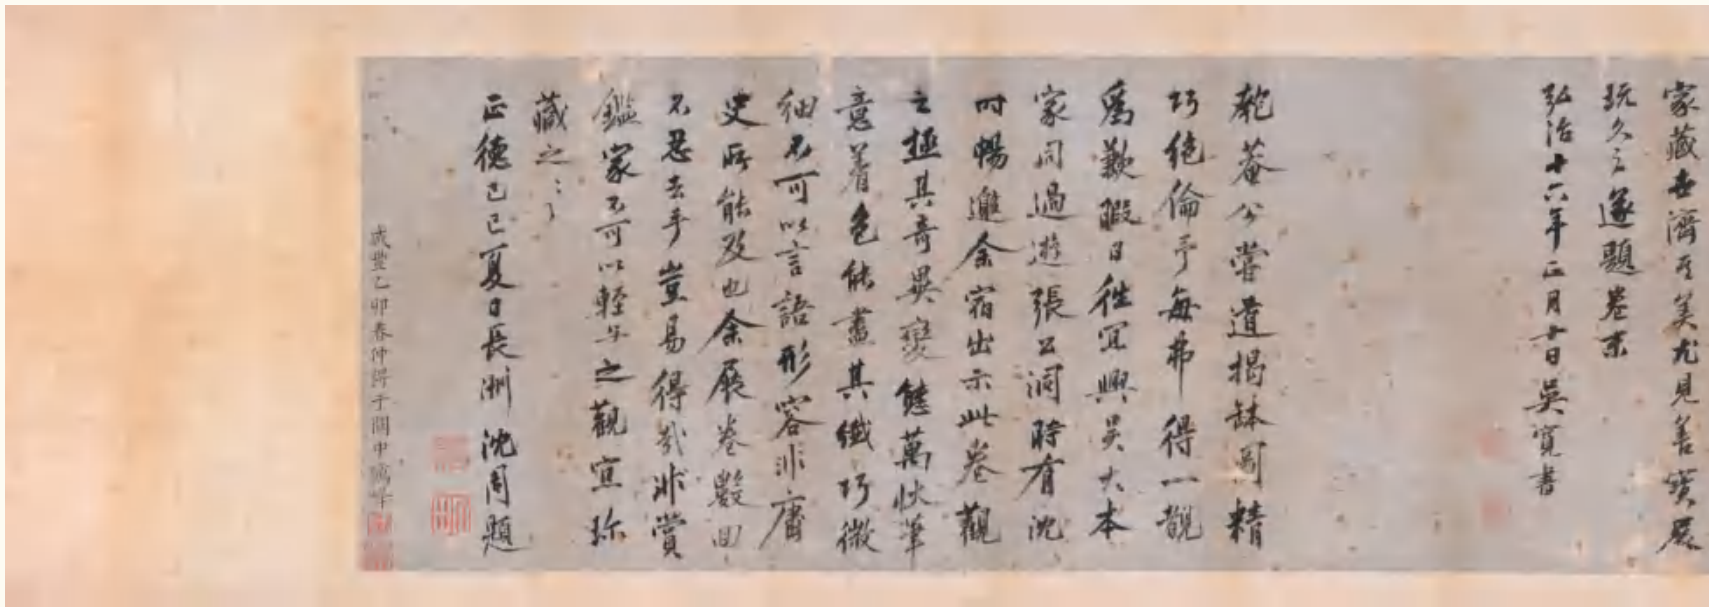 家藏世濟其美尤見其寶展
玩久之遂題卷末
弘治十六年正月十日吳寬書
匏菴公嘗道揭缽圖精
巧絕倫予每弗得一覩
為歉暇日往宜興吳大本
家同過遊張公洞時有沈
時暢邀余宿出示此卷觀
之極其奇異變態萬狀筆
意着色能盡其纖巧微
細不可以言語形容非庸
史所能及也余展卷數回
不忍去手豈易得哉非賞
鑑家不可以輕與之觀宜珍
藏之之之
正德己巳夏日長洲沈周題
咸豐乙卯春仲得于關中